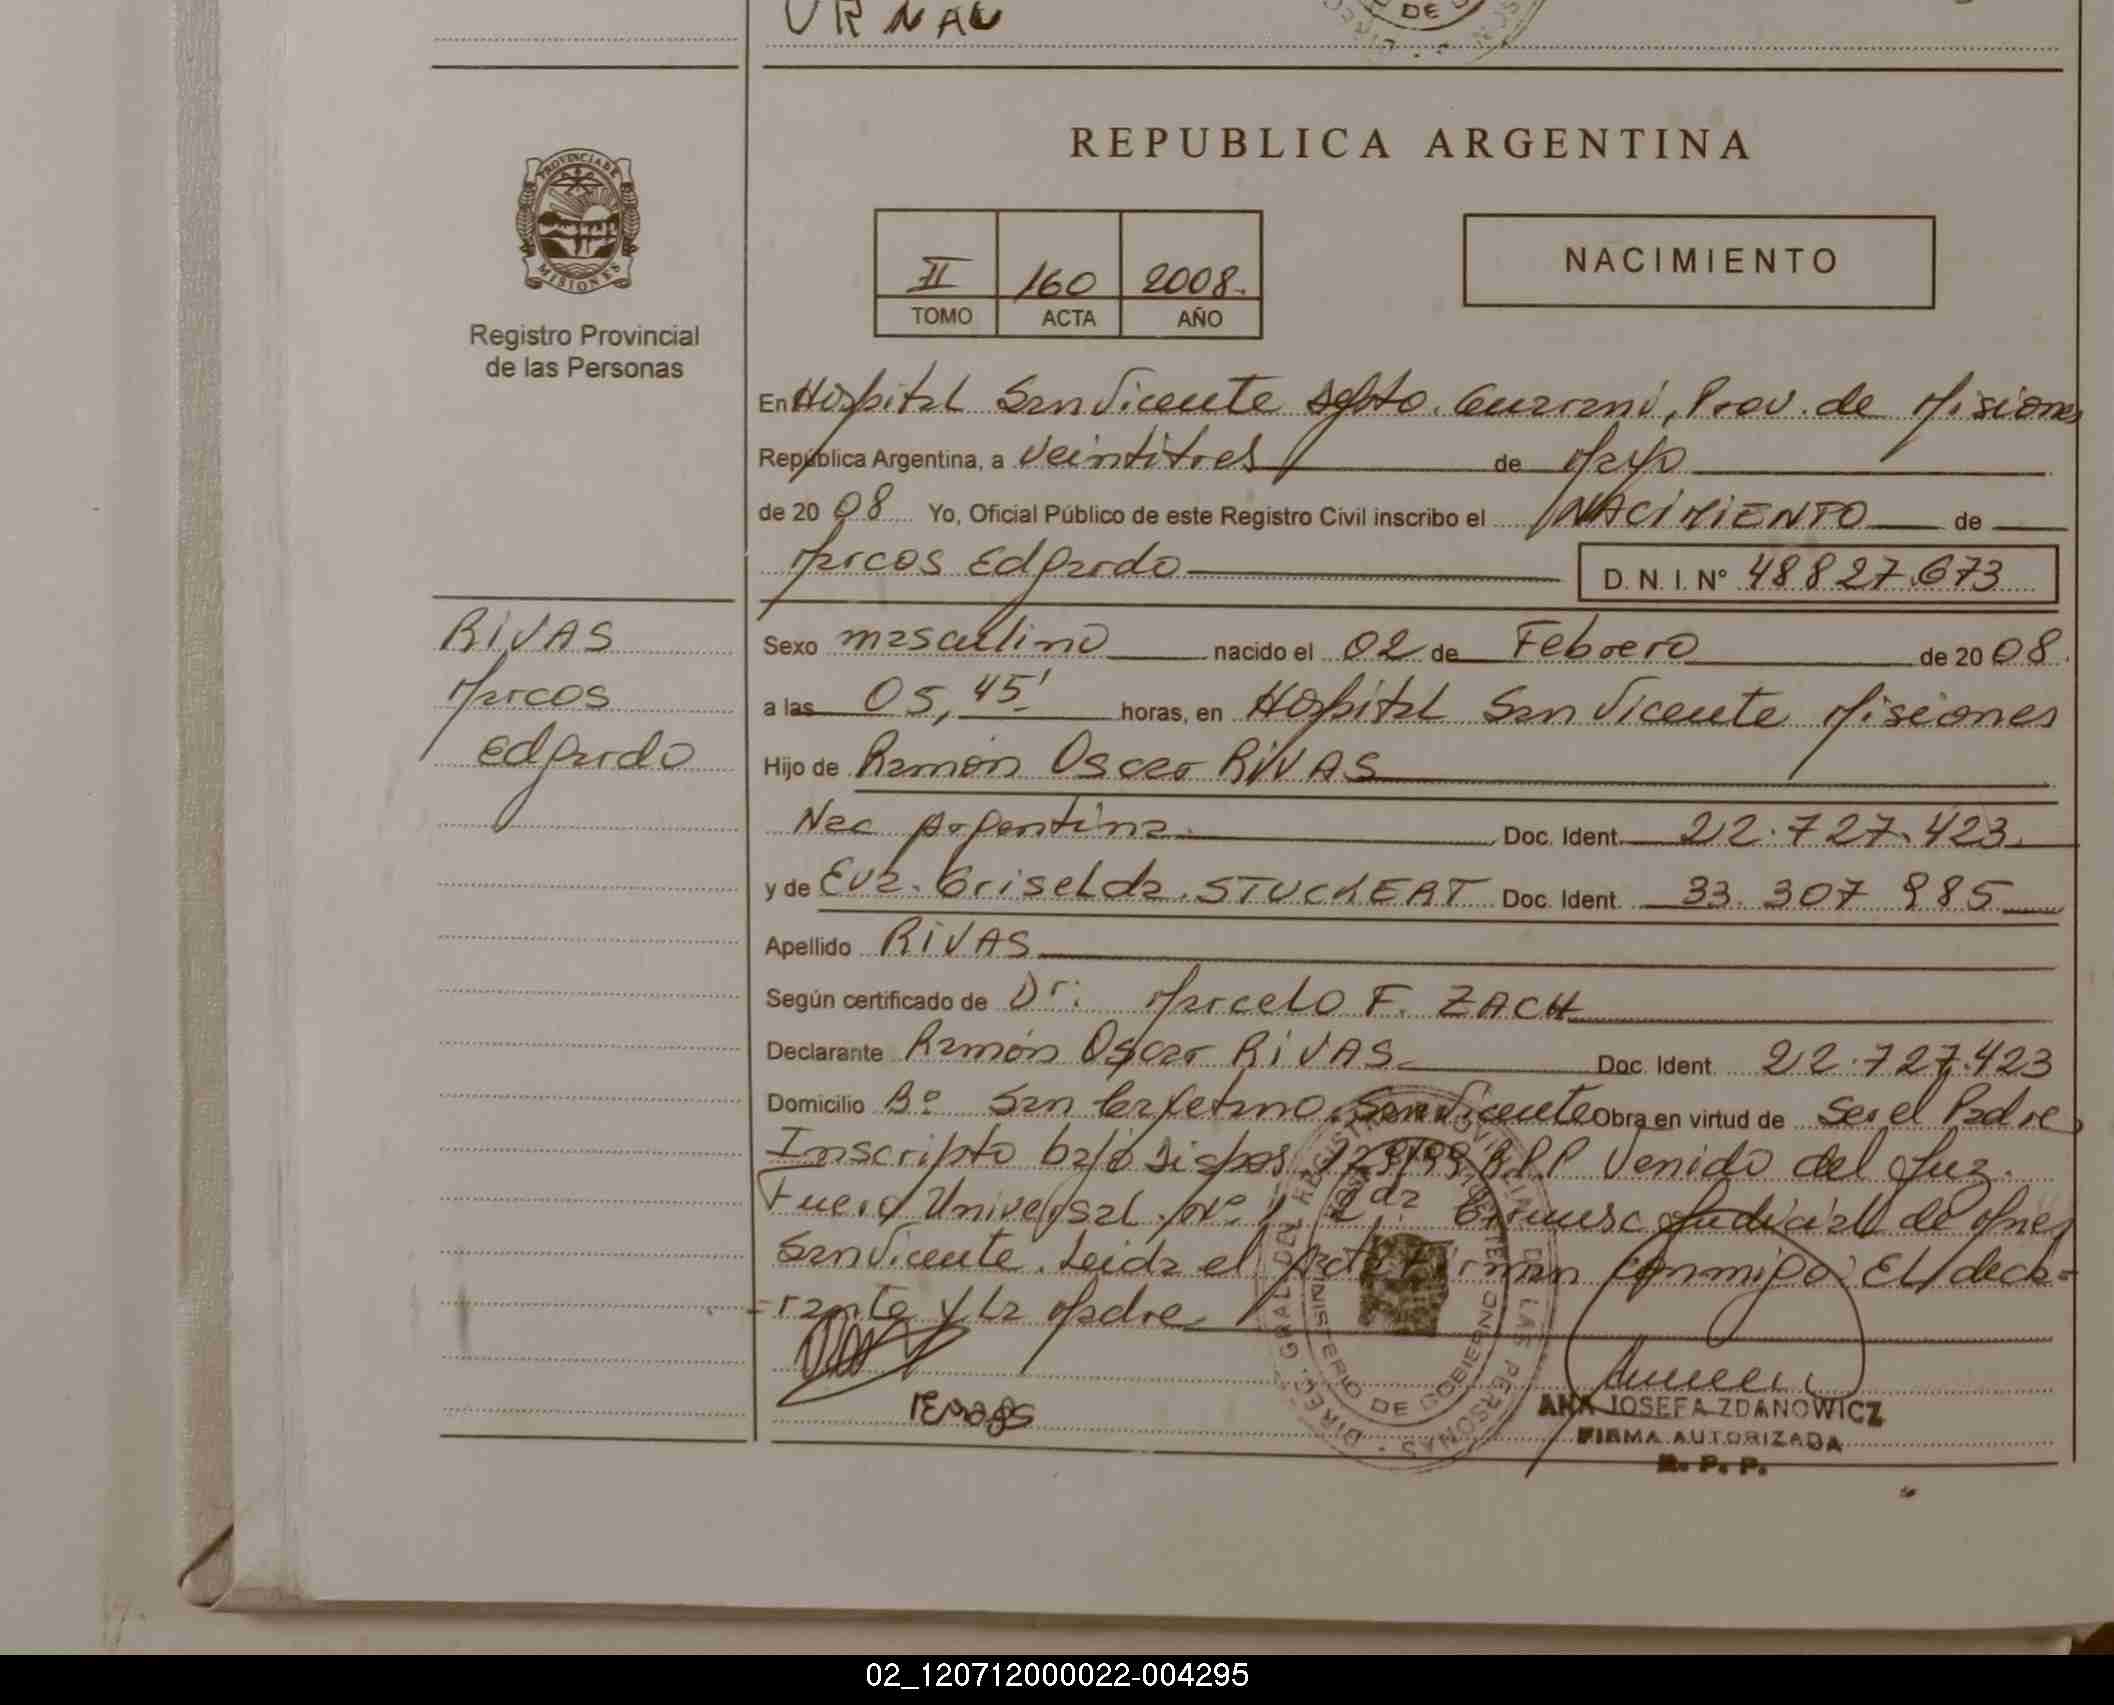 URNAU
DE
REPUBLICA ARGENTINA
PROVINCIA DE
MISIONES
Registro Provincial
de las Personas
II 160 2008.
TOMO ACTA AÑO
NACIMIENTO
En Hospital San Vicente Dpto. Guarani, Prov. de Misiones
República Argentina, a veintitres de Mayo
de 20 08 Yo, Oficial Público de este Registro Civil inscribo el NACIMIENTO de
Marcos Edgardo D. N. I. Nº 48827.673
RIVAS
Marcos
Edgardo
Sexo masculino nacido el 02 de Febrero de 20 08.
a las 05,45' horas, en Hospital San Vicente Misiones
Hijo de Ramón Oscar RIVAS
Nac Argentina Doc. Ident. 22.727.423
y de Eva Griselda STUCKERT Doc. Ident. 33.307 985
Apellido RIVAS
Según certificado de Dr: Marcelo F. ZACH
Declarante Ramón Oscar RIVAS Doc. Ident 22.727.423
Domicilio Bº San Cayetano San Vicente Obra en virtud de Ser el Padre
Inscripto bajo Dispos. 129/99 R.P.P Venido del Juz.
Fuero Universal Nº 1 2da Circunsc Judicial de Mnes
San Vicente. Leida el Acta Firman conmigo: El decla-
rante y La Madre
ANA JOSEFA ZDANOWICZ
FIRMA AUTORIZADA
R. P. P.
DIREC. GRAL. DEL REGISTRO PROVINCIAL DE LAS PERSONAS
MINISTERIO DE GOBIERNO
02_120712000022-004295